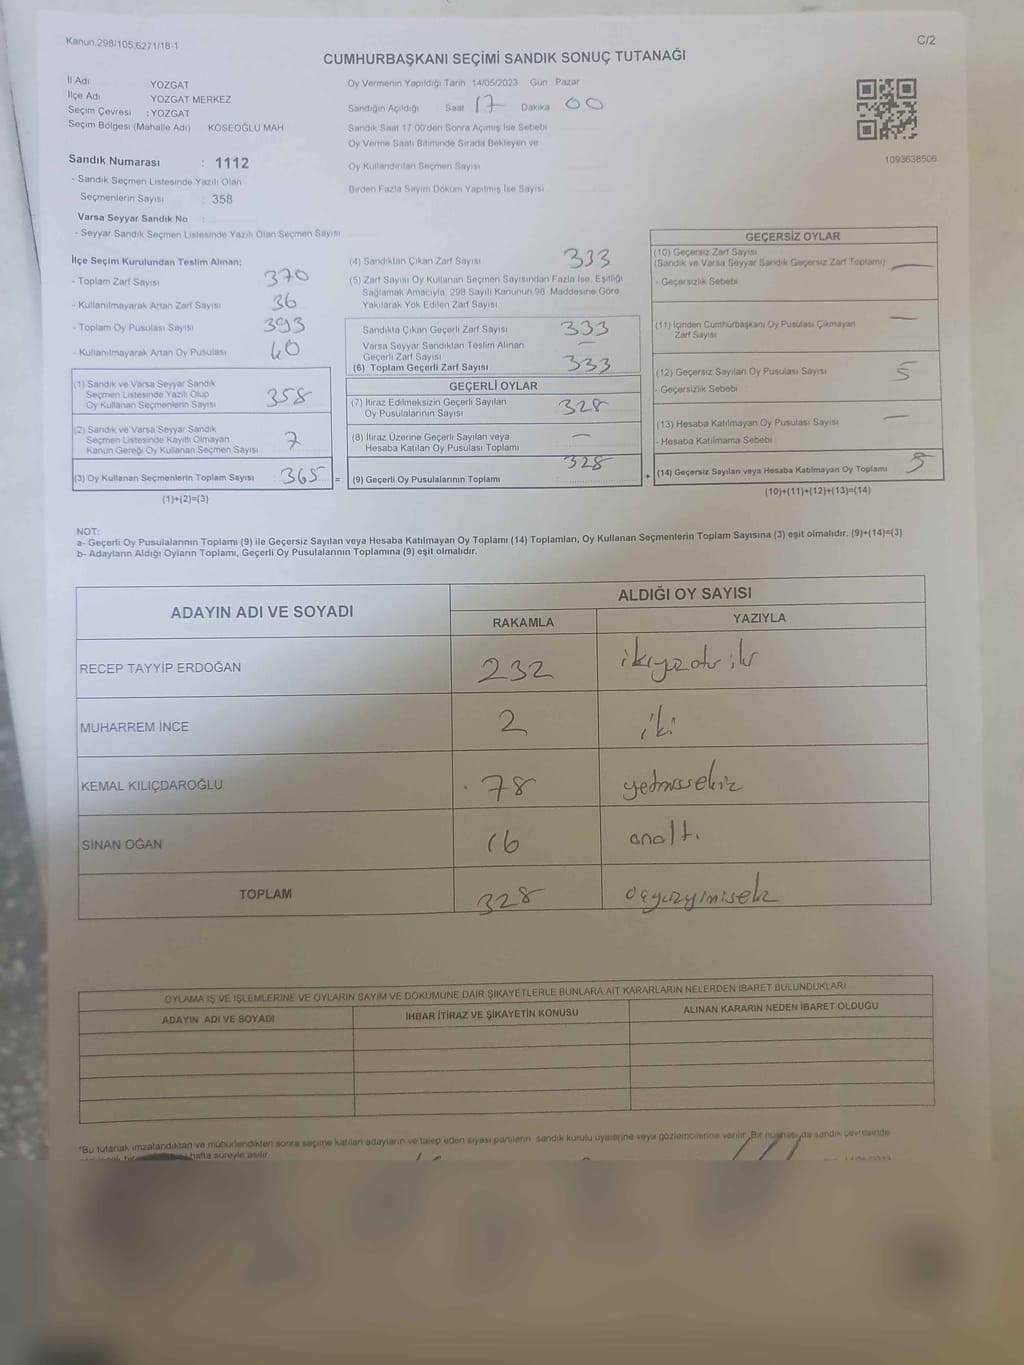 Kanun 298/105,6271/18-1
C/2
CUMHURBAŞKANI SEÇİMİ SANDIK SONUÇ TUTANAĞI
İl Adı : YOZGAT
İlçe Adı : YOZGAT MERKEZ
Seçim Çevresi : YOZGAT
Seçim Bölgesi (Mahalle Adı) KÖSEOĞLU MAH
Sandık Numarası : 1112
- Sandık Seçmen Listesinde Yazılı Olan
Seçmenlerin Sayısı : 358
Varsa Seyyar Sandık No :
- Seyyar Sandık Seçmen Listesinde Yazılı Olan Seçmen Sayısı
Oy Vermenin Yapıldığı Tarih 14/05/2023 Gün Pazar
Sandığın Açıldığı Saat 17 Dakika 00
Sandık Saat 17.00'den Sonra Açılmış İse Sebebi
Oy Verme Saati Bitiminde Sırada Bekleyen ve
Oy Kullandırılan Seçmen Sayısı
Birden Fazla Sayım Döküm Yapılmış İse Sayısı
1093638506
İlçe Seçim Kurulundan Teslim Alınan;
- Toplam Zarf Sayısı 370
- Kullanılmayarak Artan Zarf Sayısı 36
- Toplam Oy Pusulası Sayısı 393
- Kullanılmayarak Artan Oy Pusulası 40
(1) Sandık ve Varsa Seyyar Sandık
Seçmen Listesinde Yazılı Olup
Oy Kullanan Seçmenlerin Sayısı 358
(2) Sandık ve Varsa Seyyar Sandık
Seçmen Listesinde Kayıtlı Olmayan
Kanun Gereği Oy Kullanan Seçmen Sayısı 7
(3) Oy Kullanan Seçmenlerin Toplam Sayısı 365 =
(1)+(2)=(3)
(4) Sandıktan Çıkan Zarf Sayısı 333
(5) Zarf Sayısı Oy Kullanan Seçmen Sayısından Fazla İse, Eşitliği
Sağlamak Amacıyla, 298 Sayılı Kanunun 98. Maddesine Göre
Yakılarak Yok Edilen Zarf Sayısı
Sandıkta Çıkan Geçerli Zarf Sayısı 333
Varsa Seyyar Sandıktan Teslim Alınan
Geçerli Zarf Sayısı —
(6) Toplam Geçerli Zarf Sayısı 333
GEÇERLİ OYLAR
(7) İtiraz Edilmeksizin Geçerli Sayılan
Oy Pusulalarının Sayısı 328
(8) İtiraz Üzerine Geçerli Sayılan veya
Hesaba Katılan Oy Pusulası Toplamı —
(9) Geçerli Oy Pusulalarının Toplamı 328 +
GEÇERSİZ OYLAR
(10) Geçersiz Zarf Sayısı
(Sandık ve Varsa Seyyar Sandık Geçersiz Zarf Toplamı) —
- Geçersizlik Sebebi
(11) İçinden Cumhurbaşkanı Oy Pusulası Çıkmayan
Zarf Sayısı —
(12) Geçersiz Sayılan Oy Pusulası Sayısı 5
- Geçersizlik Sebebi
(13) Hesaba Katılmayan Oy Pusulası Sayısı —
- Hesaba Katılmama Sebebi
(14) Geçersiz Sayılan veya Hesaba Katılmayan Oy Toplamı 5
(10)+(11)+(12)+(13)=(14)
NOT:
a- Geçerli Oy Pusulalarının Toplamı (9) ile Geçersiz Sayılan veya Hesaba Katılmayan Oy Toplamı (14) Toplamları, Oy Kullanan Seçmenlerin Toplam Sayısına (3) eşit olmalıdır. (9)+(14)=(3)
b- Adayların Aldığı Oyların Toplamı, Geçerli Oy Pusulalarının Toplamına (9) eşit olmalıdır.
ADAYIN ADI VE SOYADI ALDIĞI OY SAYISI
RAKAMLA YAZIYLA
RECEP TAYYİP ERDOĞAN 232 ikiyüzotuziki
MUHARREM İNCE 2 iki
KEMAL KILIÇDAROĞLU 78 yetmişsekiz
SİNAN OĞAN 16 onaltı
TOPLAM 328 üçyüzyirmisekiz
OYLAMA İŞ VE İŞLEMLERİNE VE OYLARIN SAYIM VE DÖKÜMÜNE DAİR ŞİKAYETLERLE BUNLARA AİT KARARLARIN NELERDEN İBARET BULUNDUKLARI
ADAYIN ADI VE SOYADI İHBAR İTİRAZ VE ŞİKAYETİN KONUSU ALINAN KARARIN NEDEN İBARET OLDUĞU
*Bu tutanak imzalandıktan ve mühürlendikten sonra seçime katılan adayların ve talep eden siyasi partilerin sandık kurulu üyelerine veya gözlemcilerine verilir. Bir nüshası da sandık çevresinde
hafta süreyle asılır